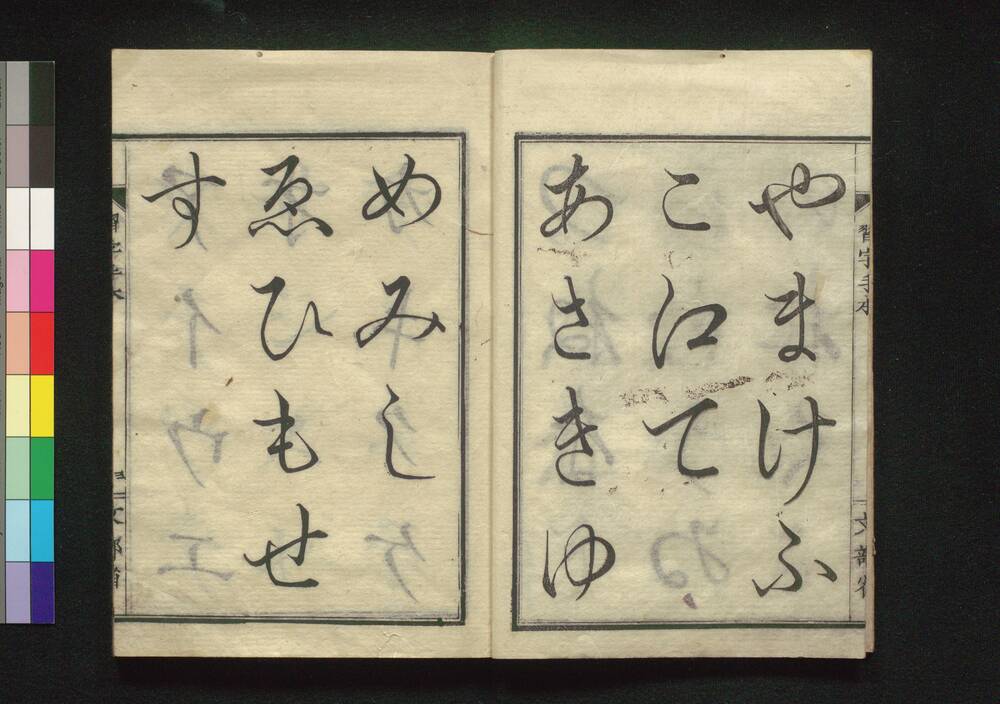 習字手本
文部省
やまけふ
こ江て
あさきゆ
めみし
ゑひもせ
す
習字手本
文部省